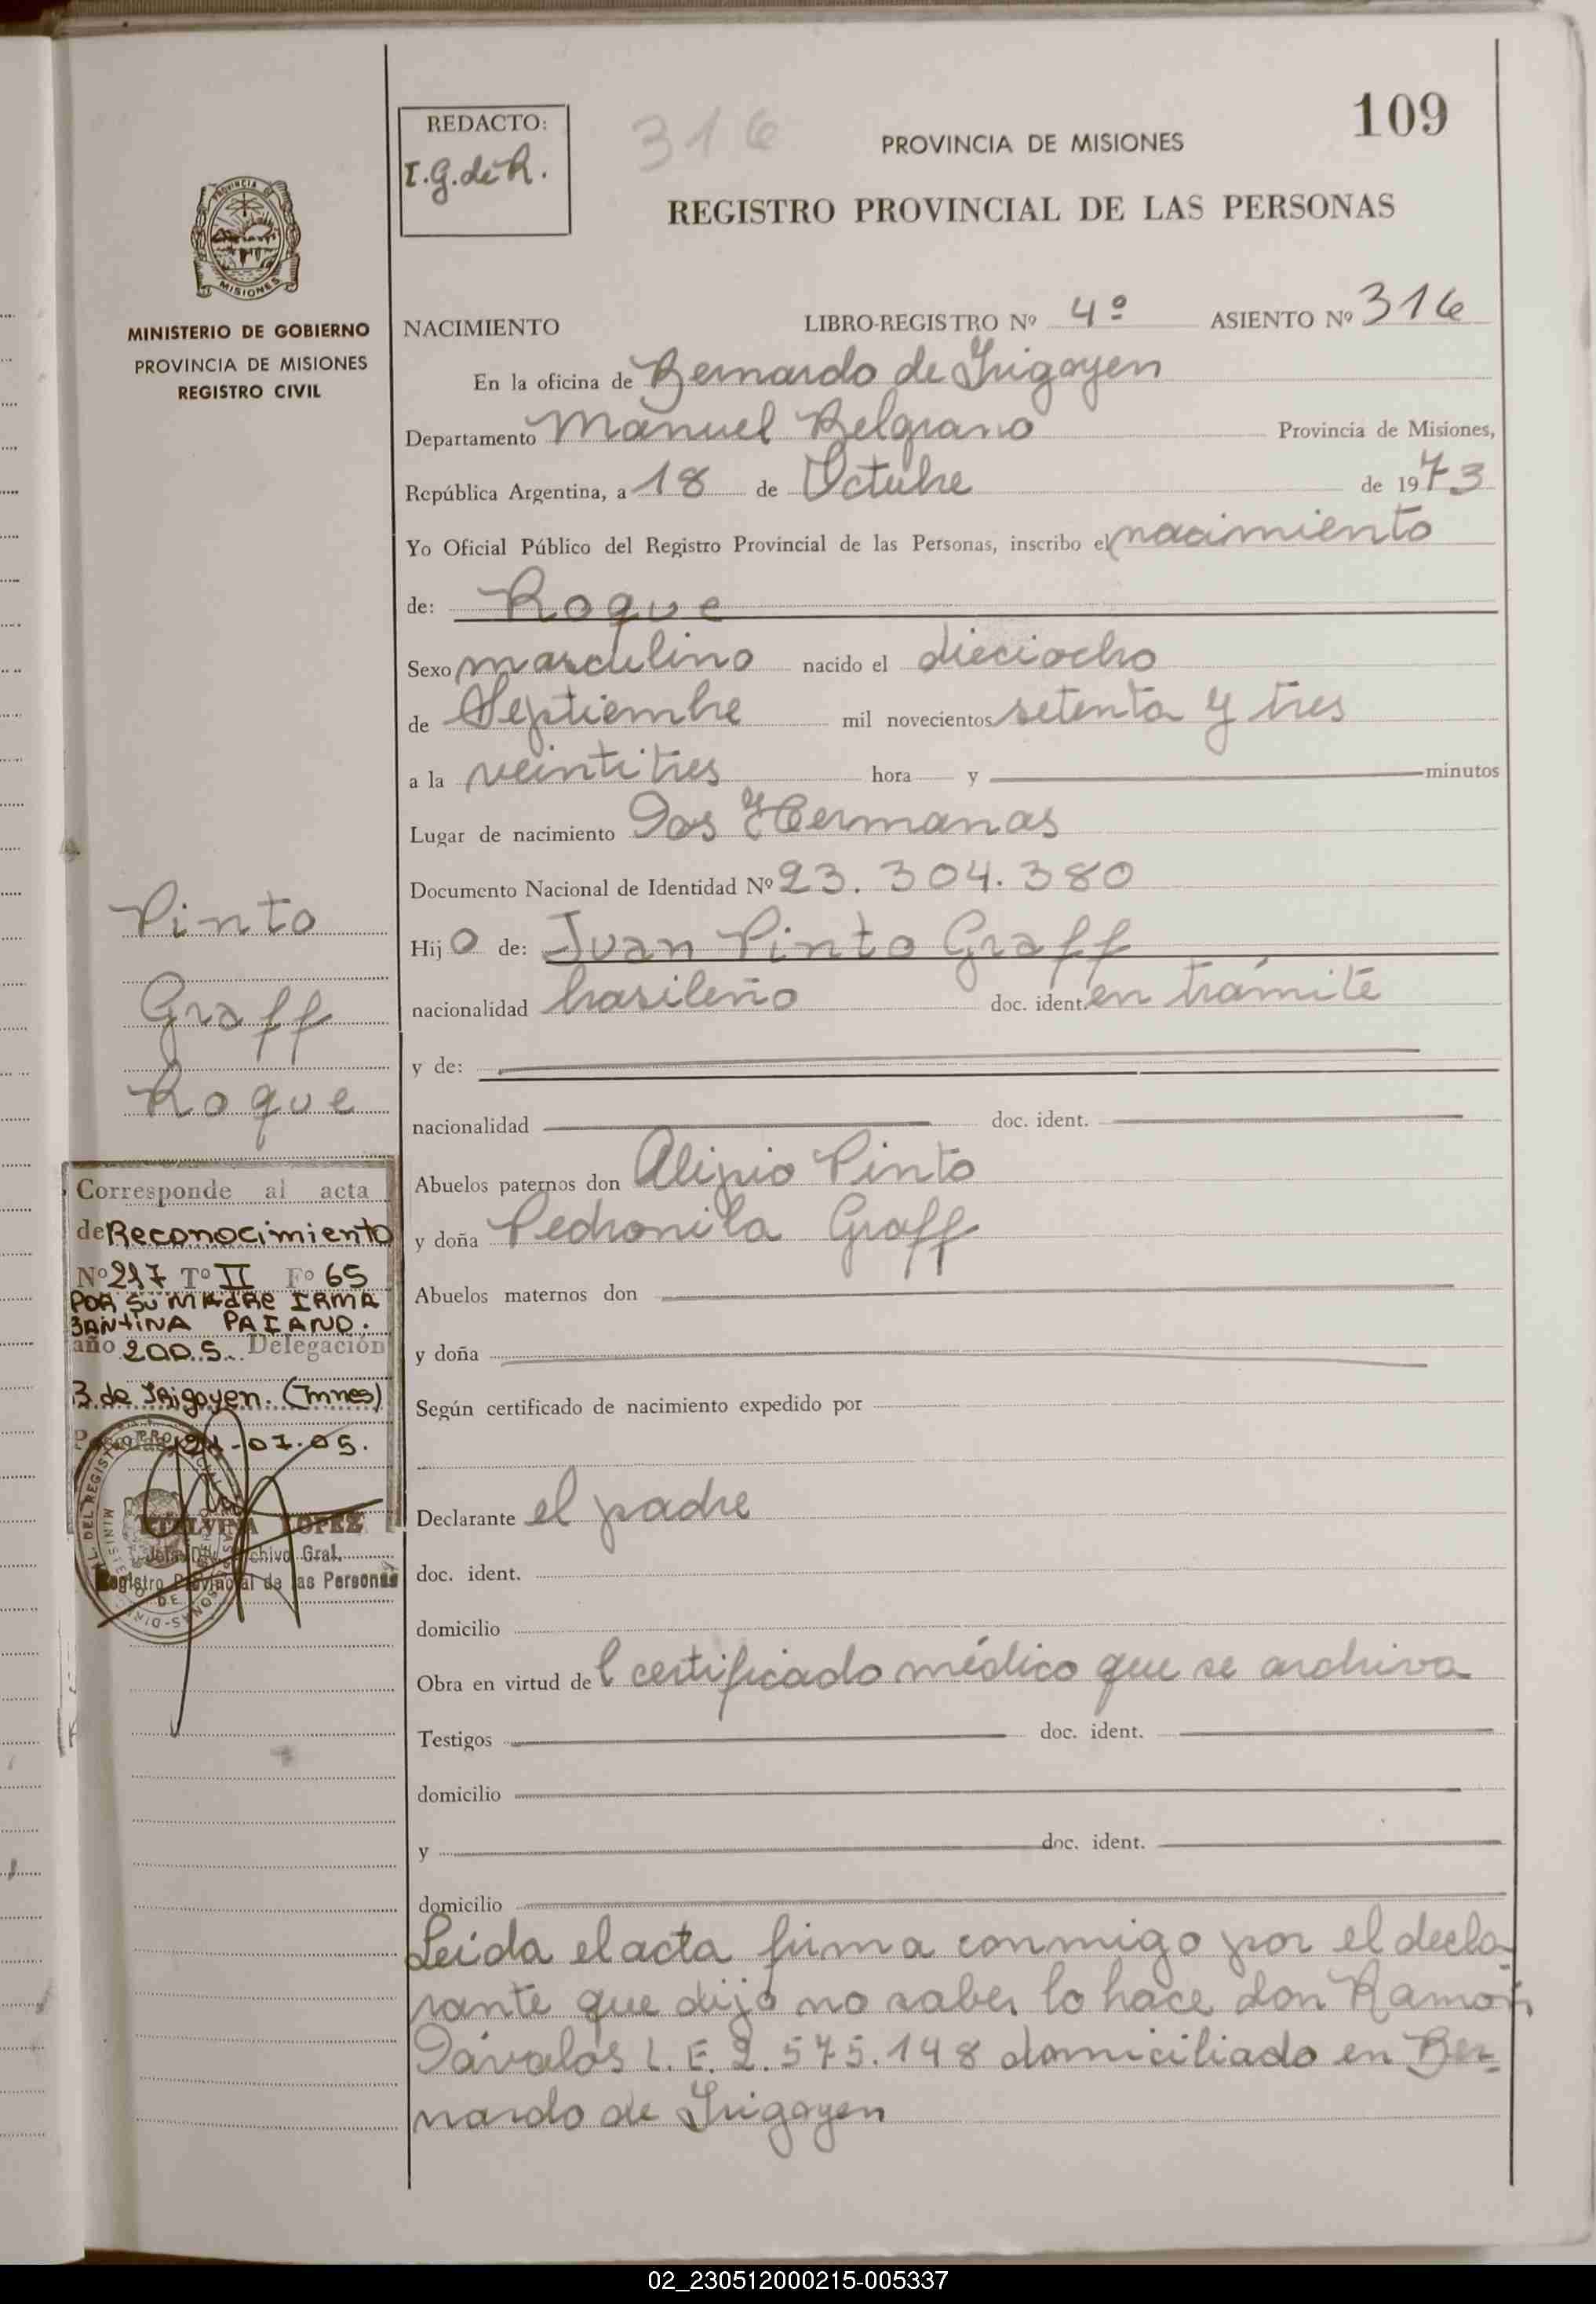 109
REDACTO:
I.G.de R.
316
PROVINCIA DE MISIONES
REGISTRO PROVINCIAL DE LAS PERSONAS
PROVINCIA DE
MISIONES
MINISTERIO DE GOBIERNO
PROVINCIA DE MISIONES
REGISTRO CIVIL
NACIMIENTO LIBRO-REGISTRO Nº 4º ASIENTO Nº 316
En la oficina de Bernardo de Irigoyen
Departamento Manuel Belgrano Provincia de Misiones,
República Argentina, a 18 de Octubre de 1973
Yo Oficial Público del Registro Provincial de las Personas, inscribo el nacimiento
de: Roque
Sexo masculino nacido el dieciocho
de Septiembre mil novecientos setenta y tres
a la veintitres hora y minutos
Lugar de nacimiento Dos Hermanas
Documento Nacional de Identidad Nº 23.304.380
Hijo de: Juan Pinto Graff
nacionalidad brasileño doc. ident. en trámite
y de:
nacionalidad doc. ident.
Abuelos paternos don Alipio Pinto
y doña Pedronila Graff
Abuelos maternos don
y doña
Según certificado de nacimiento expedido por
Declarante el padre
doc. ident.
domicilio
Obra en virtud del certificado médico que se archiva
Testigos doc. ident.
domicilio
y doc. ident.
domicilio
Leída el acta firma conmigo por el decla-
rante que dijo no saber lo hace don Ramón
Dávalos L.E. 2.575.148 domiciliado en Ber=
nardo de Irigoyen
Pinto
Graff
Roque
Corresponde al acta
de Reconocimiento
Nº 217 Tº II Fº 65
POR SU MADRE IRMA
SANTINA PAIANO.
año 2005. Delegación
B. de Irigoyen. (Mnes)
-07-05.
LOPEZ
Archivo Gral.
Registro Provincial de las Personas
02_230512000215-005337